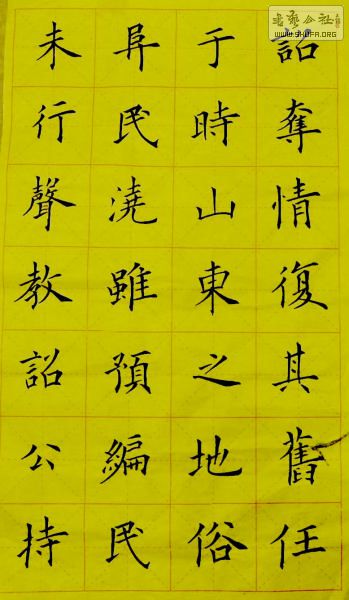 詔奪情復其舊任
于時山東之地俗
阜民澆雖預編民
未行聲教詔公持
書艺公社
WWW.SHUFA.ORG